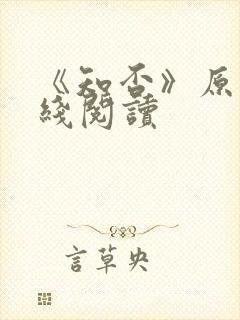 《知否》原
綫閱讀
言草央